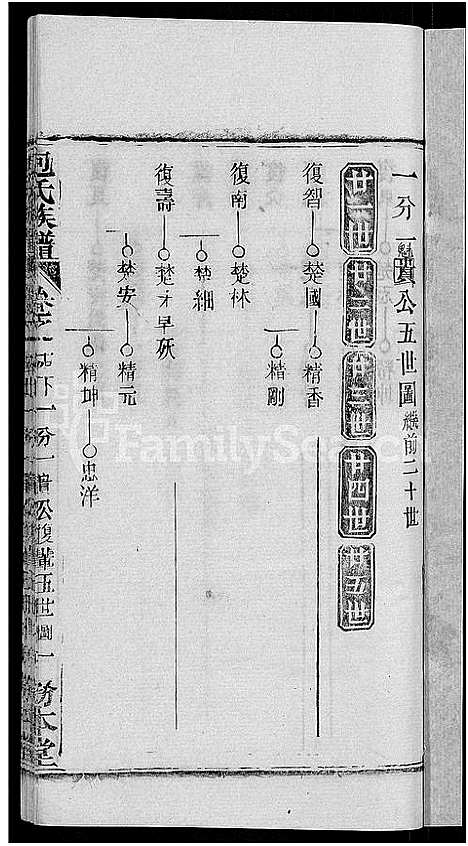 一分一贵公五世圖 繼前二十世
廿一世 廿二世 廿三世 廿四世 廿五世
復智 楚國 精香
精剛
復南 楚林
楚細
復壽 楚才早殀
楚安 精元
精坤 忠洋
氏族譜 卷之一 下一分一 公復輩五世圖 一 堂
FamilySearch